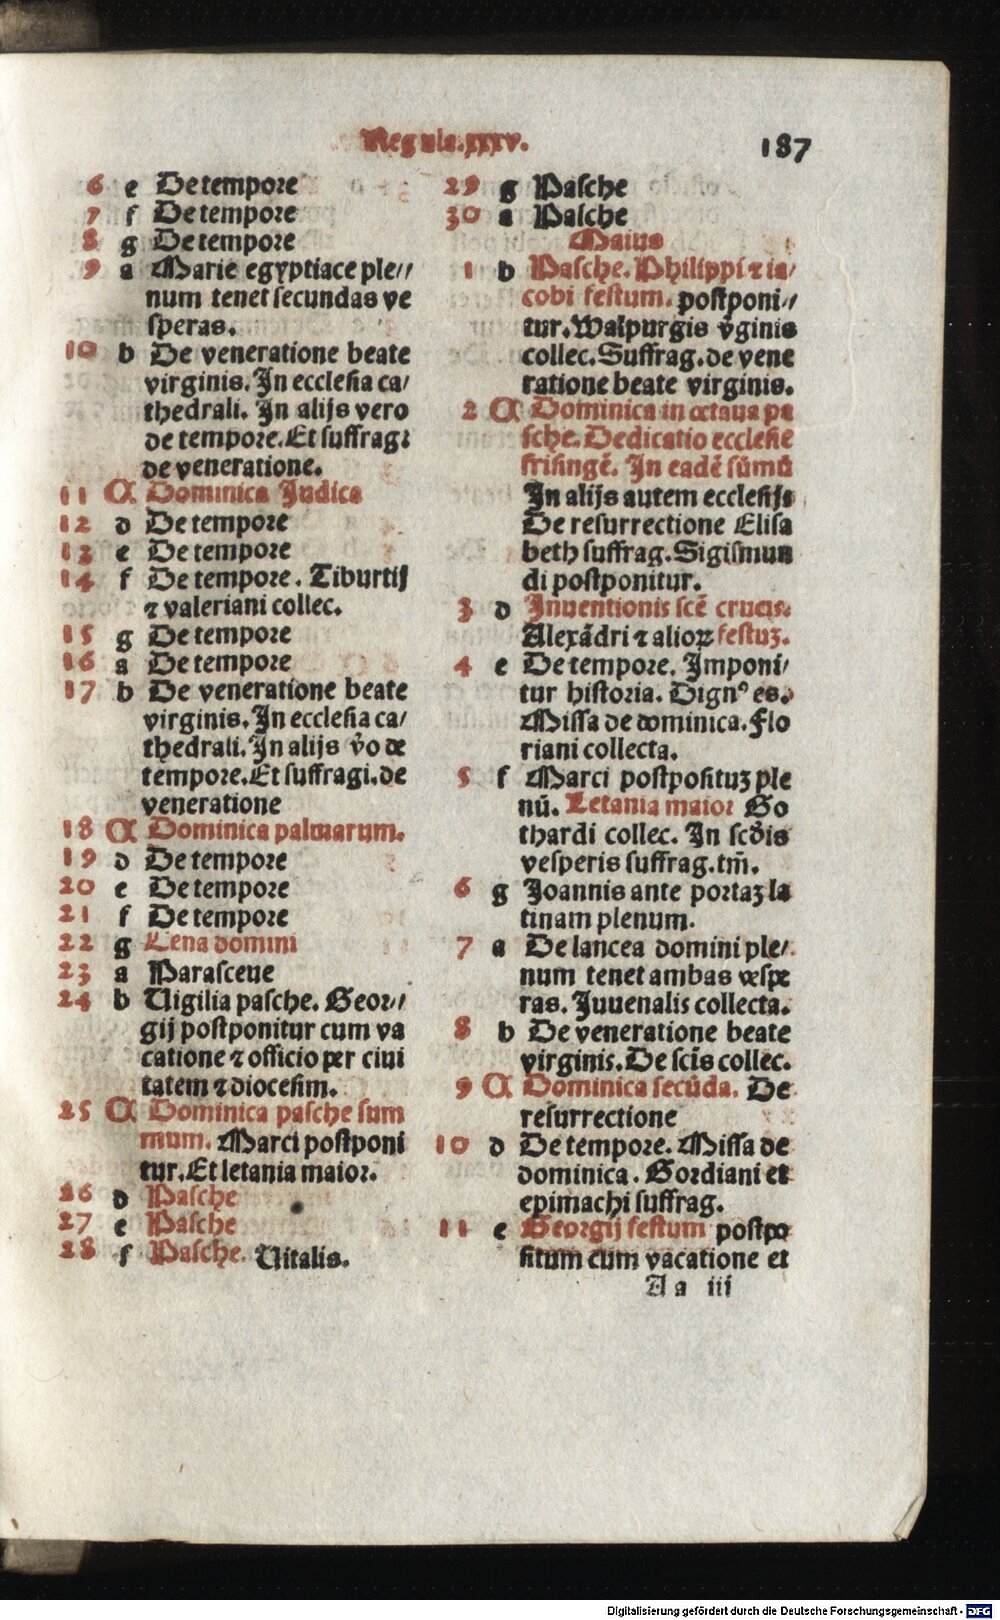 Regula.xxxv.
187
6 e De tempore
7 f De tempore
8 g De tempore
9 a Marie egyptiace ple//
num tenet secundas ve
speras.
10 b De veneratione beate
virginis. In ecclesia ca/
thedrali. In alijs vero
de tempore. Et suffragꝛ
de veneratione.
11 A Dominica Judica
12 d De tempore
13 e De tempore
14 f De tempore. Tiburtij
⁊ valeriani collec.
15 g De tempore
16 a De tempore
17 b De veneratione beate
virginis. In ecclesia ca/
thedrali. In alijs v̄o de
tempore. Et suffragi. de
veneratione
18 A Dominica palmarum.
19 d De tempore
20 e De tempore
21 f De tempore
22 g Cena domini
23 a Parasceue
24 b Uigilia pasche. Geor//
gij postponitur cum va
catione ⁊ officio per ciui
tatem ⁊ diocesim.
25 A Dominica pasche sum
mum. Marci postponi
tur. Et letania maior.
26 d Pasche
27 e Pasche
28 f Pasche. Uitalis.
29 g Pasche
30 a Pasche
Maius
1 b Pasche. Philippi ⁊ ia/
cobi festum. postponi//
tur. Walpurgis v̄ginis
collec. Suffrag. de vene
ratione beate virginis.
2 A Dominica in octaua pa
sche. Dedicatio ecclesie
frisingē. In eadē sūmū
In alijs autem ecclesijs
De resurrectione Elisa
beth suffrag. Sigismun
di postponitur.
3 d Inuentionis scē crucis.
Alexādri ⁊ alioꝝ festuꝫ.
4 e De tempore. Imponi/
tur historia. Dignꝰ es.
Missa de dominica. Flo
riani collecta.
5 f Marci postposituꝫ ple
nū. Letania maior Go
thardi collec. In scd̄is
vesperis suffrag. tm̄.
6 g Joannis ante portaꝫ la
tinam plenum.
7 a De lancea domini ple/
num tenet ambas vespe
ras. Juuenalis collecta.
8 b De veneratione beate
virginis. De sctīs collec.
9 A Dominica secūda. De
resurrectione
10 d De tempore. Missa de
dominica. Gordiani et
epimachi suffrag.
11 e Georgij festum postpo
situm cum vacatione et
A a iij
Digitalisierung gefördert durch die Deutsche Forschungsgemeinschaft - DFG